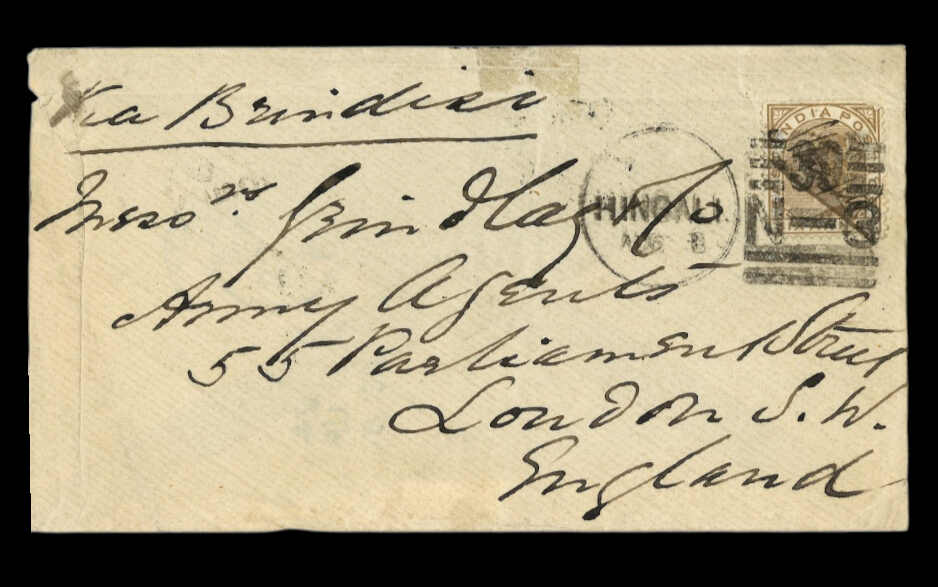 Via Brindisi
Messrs. Grindlay & Co
Army Agents
55 Parliament Street
London S. W.
England
INDIA PO
AUG 8